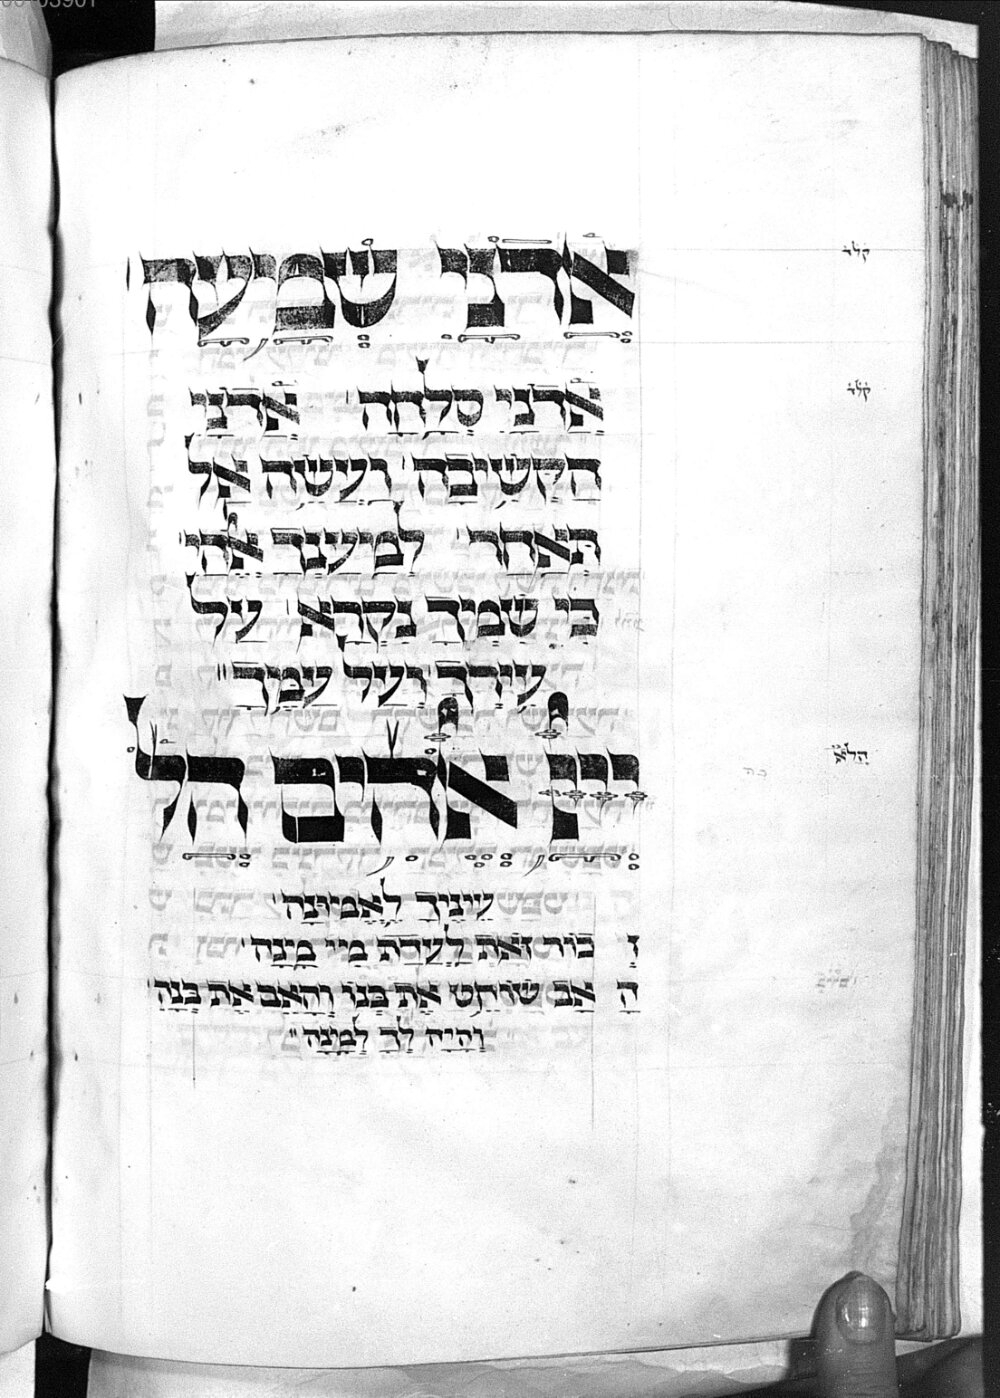 אֲדֹנָי שְׁמָעָה
אֲדֹנָי סְלָחָה אֲדֹנָי
הַקְשִׁיבָה וַעֲשֵׂה אַל
תְּאַחַר לְמַעַנְךָ אֱלֹהַי
כִּי שִׁמְךָ נִקְרָא עַל
עִירְךָ וְעַל עַמֶּךָ
ייי אֱלֹהִים הֲלֹא
עֵינֶיךָ לֶאֱמוּנָה
זְכוֹר זֹאת לַעֲדַת מִי מָנָה
הָאָב שׁוֹחֵט אֶת בְּנוֹ וְהָאֵם אֶת בְּנָהּ
וְהָיָה לְךָ לְמָנָה